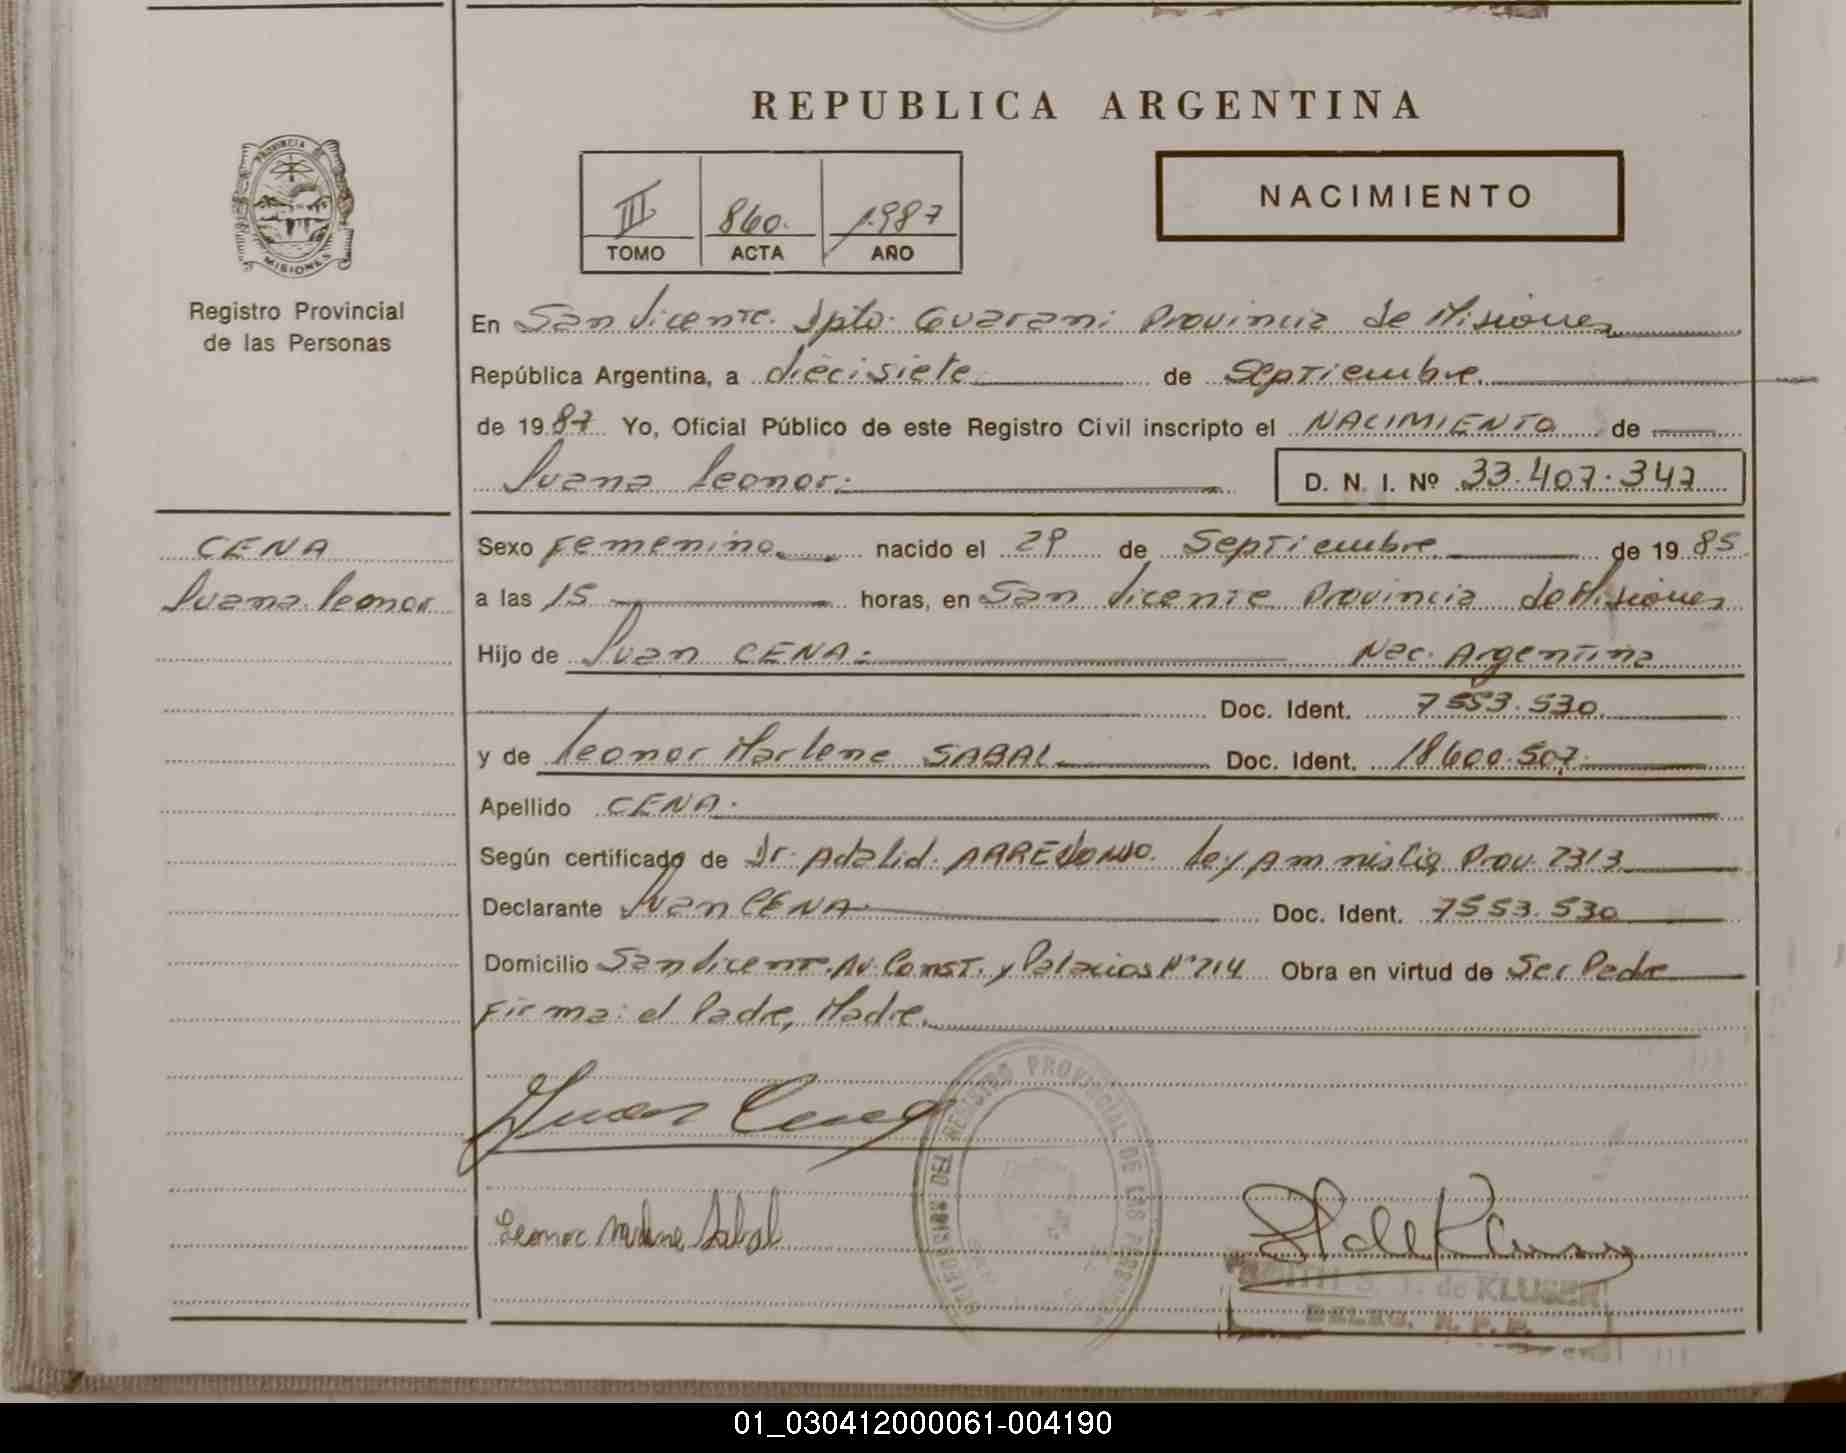 REPUBLICA ARGENTINA
PROVINCIA DE
MISIONES
Registro Provincial
de las Personas
III 860. 1987
TOMO ACTA AÑO
NACIMIENTO
En San Vicente. Dpto. Guarani Provincia de Misiones
República Argentina, a diecisiete de Septiembre
de 1987 Yo, Oficial Público de este Registro Civil inscripto el NACIMIENTO de
Juana Leonor. D. N. I. Nº 33.407.347
CENA
Juana Leonor
Sexo Femenino nacido el 29 de Septiembre de 1985
a las 15 horas, en San Vicente Provincia de Misiones
Hijo de Juan CENA. Nac. Argentina
Doc. Ident. 7553.530
y de Leonor Marlene SABAL Doc. Ident. 18600.507.
Apellido CENA.
Según certificado de Dr. Adalid. ARREDONDO. Ley Amnistia Prov. 2313
Declarante Juan CENA Doc. Ident. 7553.530
Domicilio San Vicente. Av. Const. y Palacios Nº 714 Obra en virtud de Ser Padre
Firma: el Padre, Madre.
Juan Cena
DEL REGISTRO PROVINCIAL DE LAS PERSONAS
Leonor Marlene Sabal
de KLUSER
DELEG. R. P. P.
01_030412000061-004190